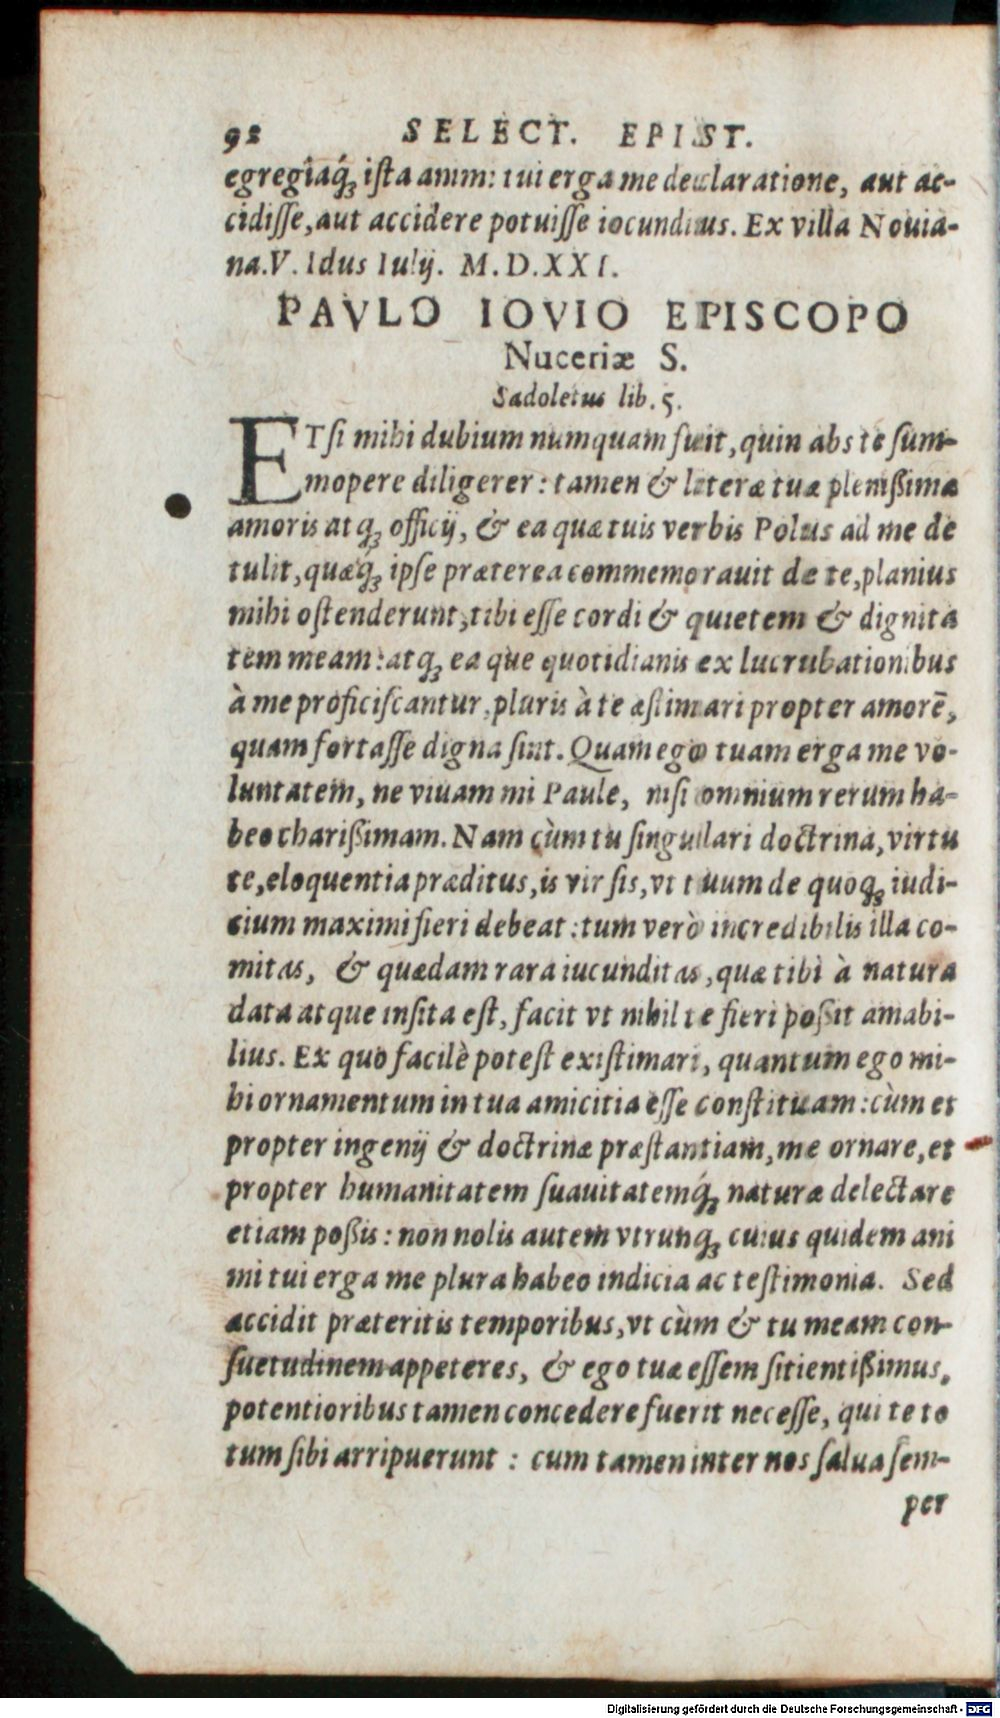 92 SELECT. EPIST.
egregiaq́ꝫ ista animi tui erga me declaratione, aut ac-
cidisse, aut accidere potuisse iocundius. Ex villa Nouia-
na. V. Idus Iulij. M.D.XXI.
PAVLO IOVIO EPISCOPO
Nuceriæ S.
Sadoletus lib. 5.
ETsi mihi dubium numquam fuit, quin abs te sum-
mopere diligerer: tamen & literæ tuæ plenißimæ
amoris atqꝫ officij, & ea quæ tuis verbis Polus ad me de
tulit, quæqꝫ ipse præterea commemorauit de te, planius
mihi ostenderunt, tibi esse cordi & quietem & dignita
tem meam: atqꝫ ea que quotidianis ex lucrubationibus
à me proficiscantur, pluris à te æstimari propter amorē,
quam fortasse digna sint. Quam ego tuam erga me vo-
luntatem, ne viuam mi Paule, nisi omnium rerum ha-
beo charißimam. Nam cùm tu singulari doctrina, virtu
te, eloquentia præditus, is vir sis, vt tuum de quoqꝫ iudi-
cium maximi fieri debeat: tum verò incredibilis illa co-
mitas, & quædam rara iucunditas, quæ tibi à natura
data atque insita est, facit vt nihil te fieri poßit amabi-
lius. Ex quo facilè potest existimari, quantum ego mi-
hi ornamentum in tua amicitia esse constituam: cùm et
propter ingenij & doctrinæ præstantiam, me ornare, et
propter humanitatem suauitatemq́ꝫ naturæ delectare
etiam poßis: non nolis autem vtrunqꝫ cuius quidem ani
mi tui erga me plura habeo indicia ac testimonia. Sed
accidit præteritis temporibus, vt cùm & tu meam con-
suetudinem appeteres, & ego tuæ essem sitientißimus,
potentioribus tamen concedere fuerit necesse, qui te to
tum sibi arripuerunt: cum tamen inter nos salua sem-
per
Digitalisierung gefördert durch die Deutsche Forschungsgemeinschaft - DFG